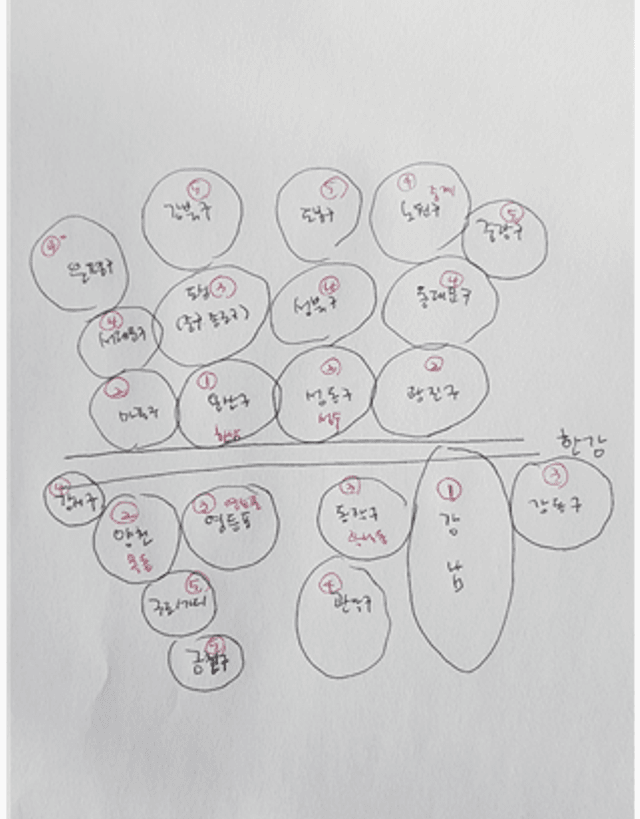 ⑤
강북구
⑤
도봉구
④ 중계
노원구
⑤
중랑구
④
은평구
도심③
(중구 종로구)
④
성북구
④
동대문구
④
서대문구
②
마포구
①
용산구
한남
②
성동구
성수
②
광진구
한강
④
강서구
②
양천
목동
영등포
③
동작구
흑석동
①
강
남
③
강동구
⑤
④
관악구
금천구